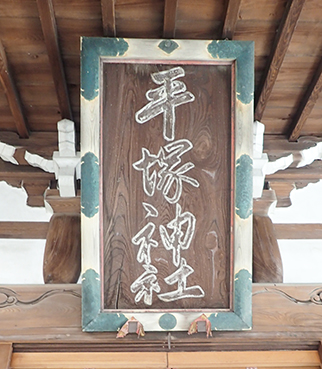 平塚神社